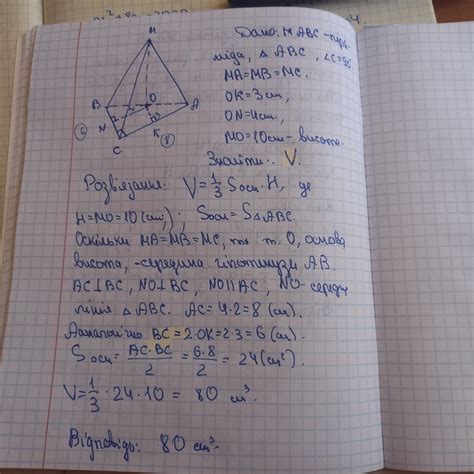 M
Дано: MABC - піра-
міда, △ ABC, ∠C=90°
MA=MB=MC.
OK=3см,
ON=4см,
MO=10см - висота.
Знайти: V.
B
O
A
N
K
C
⑥
⑧
Розв'язання: V=1/3 Sосн·H, де
H=MO=10(см); Sосн=S△ABC.
Оскільки MA=MB=MC, то т. O, основа
висоти, -середина гіпотенузи AB.
AC⊥BC, NO⊥BC, NO||AC, NO-середн
лінія △ ABC. AC=4·2=8 (см).
Аналогічно BC=2·OK=2·3=6 (см).
Sосн= AC·BC/2 = 6·8/2 = 24(см²)
V=1/3 ·24·10= 80 см³.
Відповідь: 80 см³.